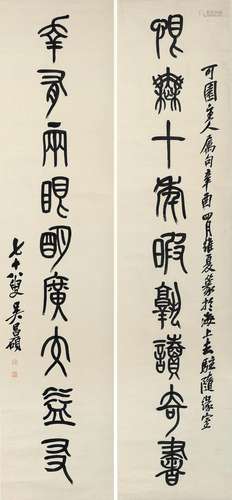 恨無十年暇熟讀奇書
可園主人屬句辛酉四月維夏篆於海上去駐隨緣室
幸有兩眼明廣交益友
七十八叟吳昌碩